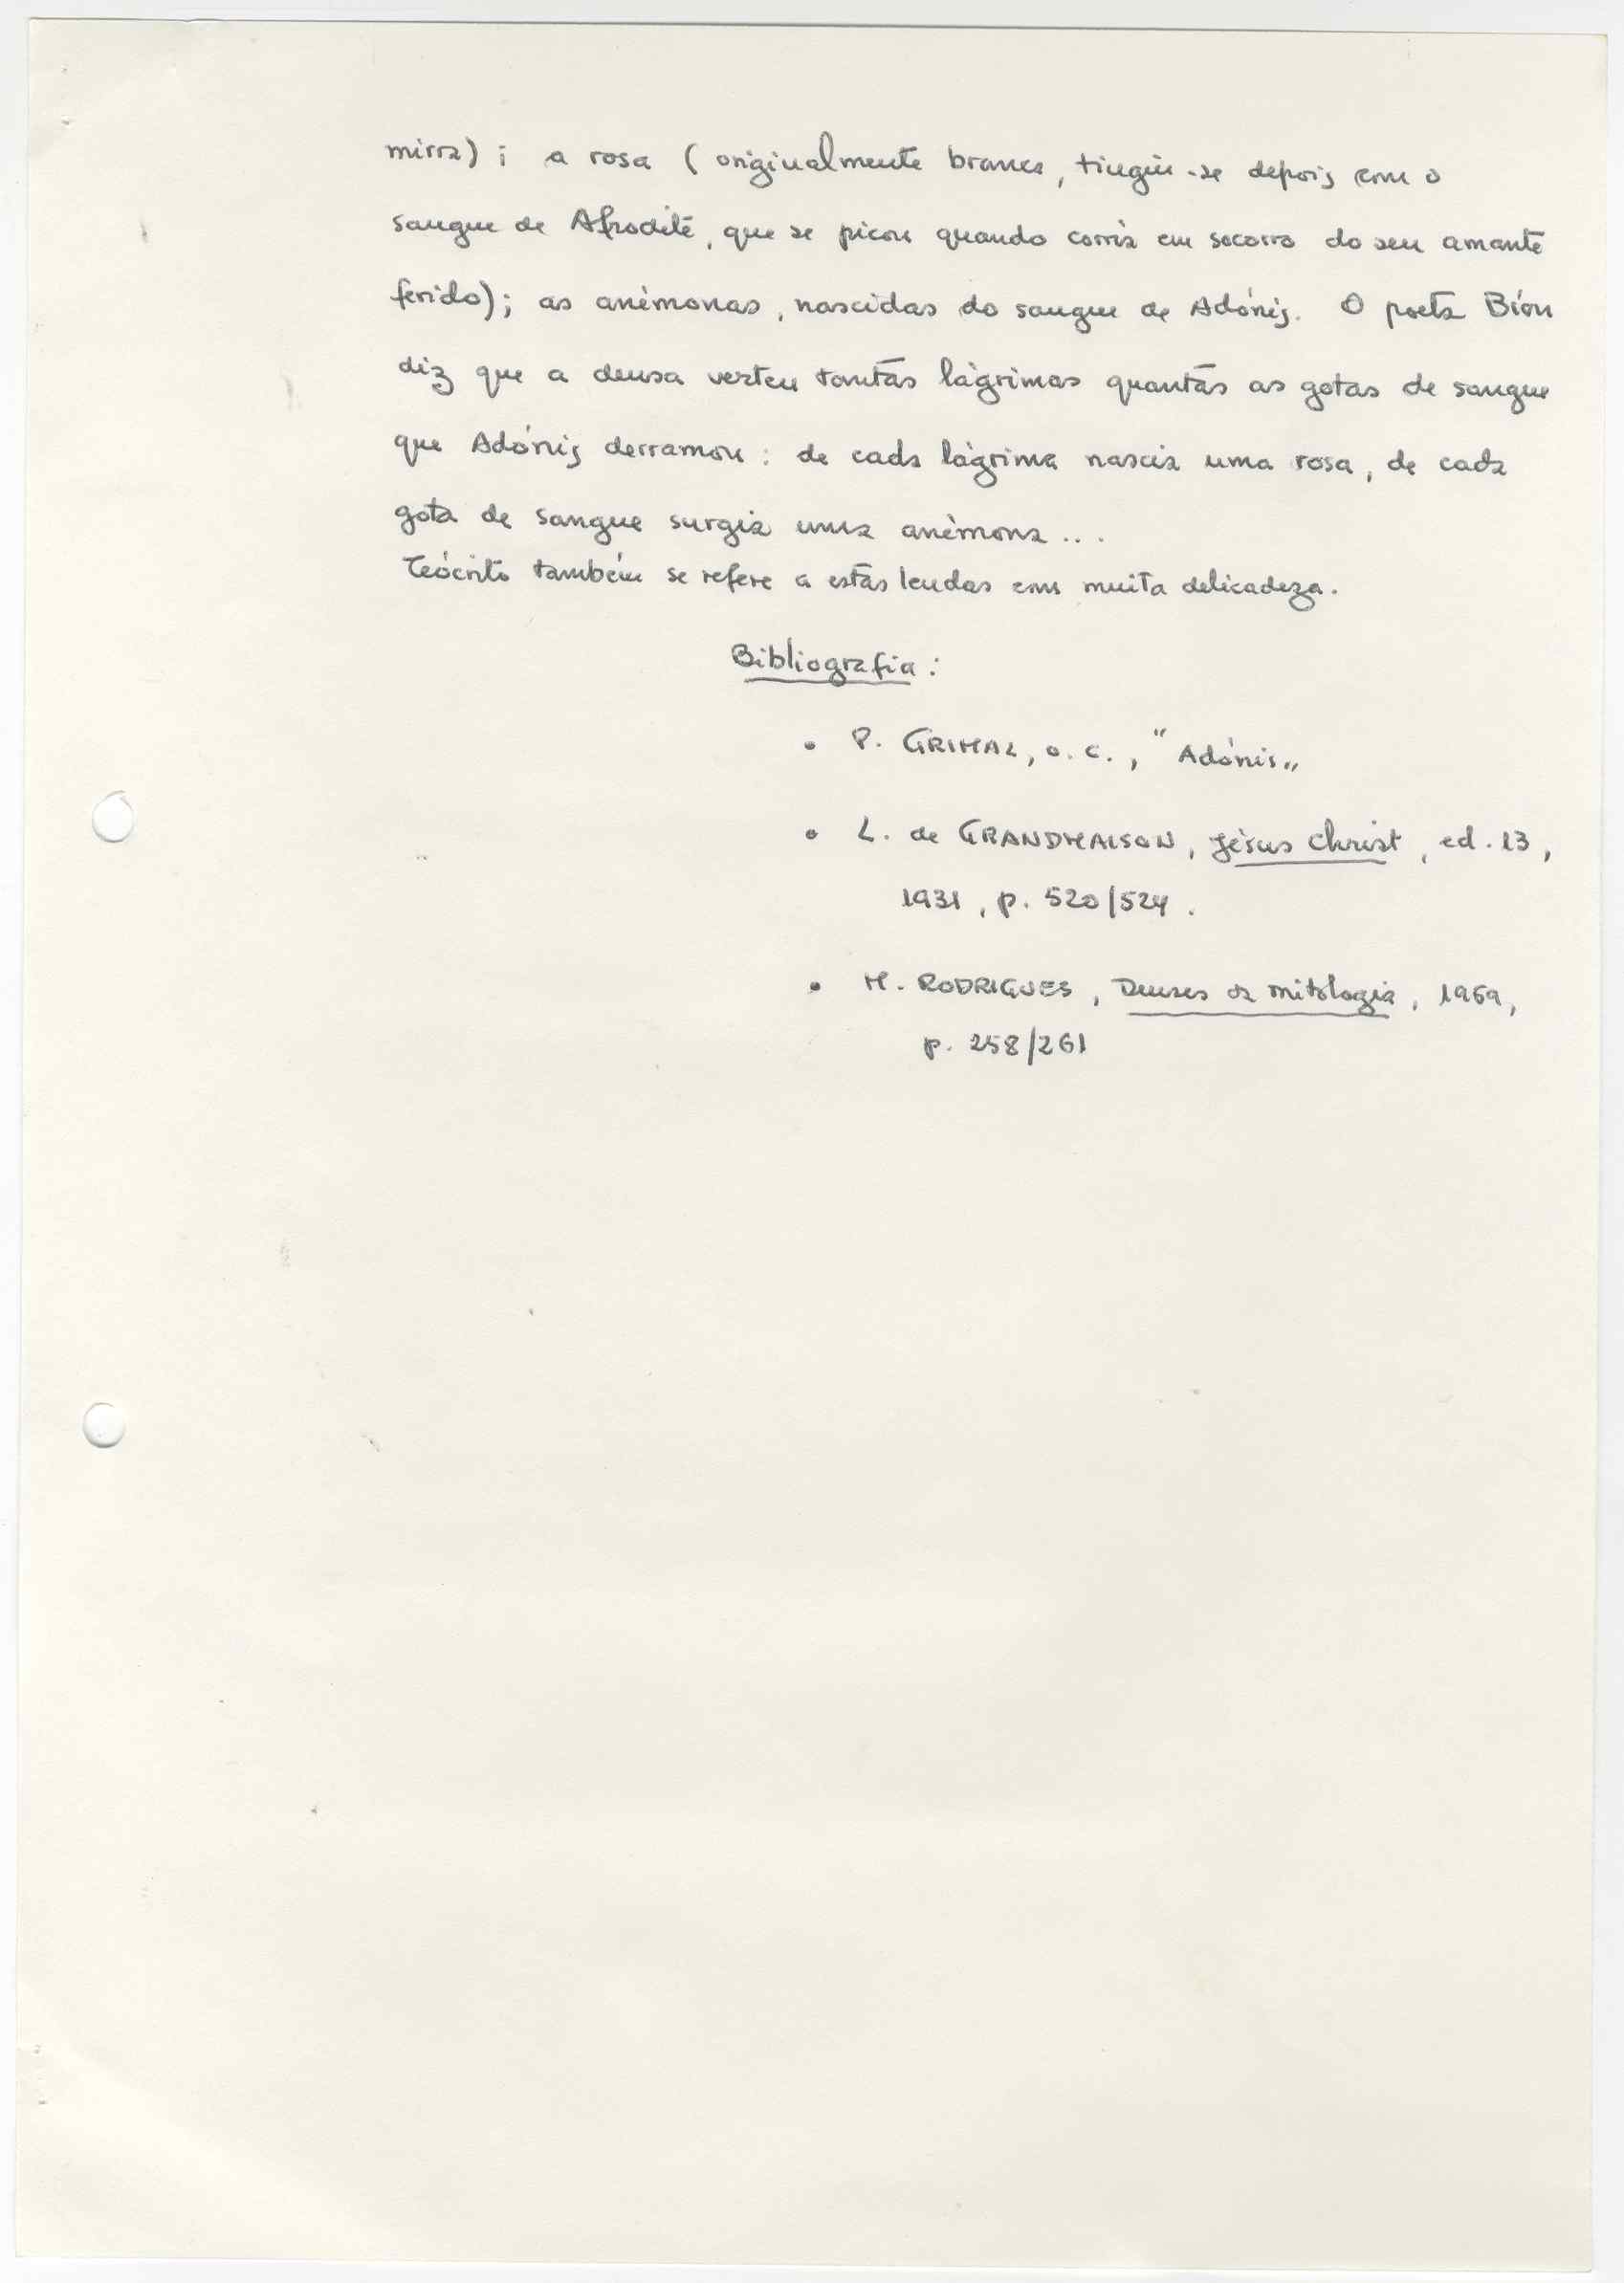 mirra); a rosa (originalmente branca, tingiu-se depois com o
sangue de Afrodite, que se picou quando corria em socorro do seu amante
ferido); as anémonas, nascidas do sangue de Adónis. O poeta Bíon
diz que a deusa verteu tantas lágrimas quantas as gotas de sangue
que Adónis derramou: de cada lágrima nascia uma rosa, de cada
gota de sangue surgia uma anémona...
Teócrito também se refere a estas lendas com muita delicadeza.
Bibliografia:
• P. GRIMAL, o. c., "Adónis"
• L. de GRANDMAISON, Jésus Christ, ed. 13,
1931, p. 520/524.
• M. RODRIGUES, Deuses da mitologia, 1969,
p. 258/261